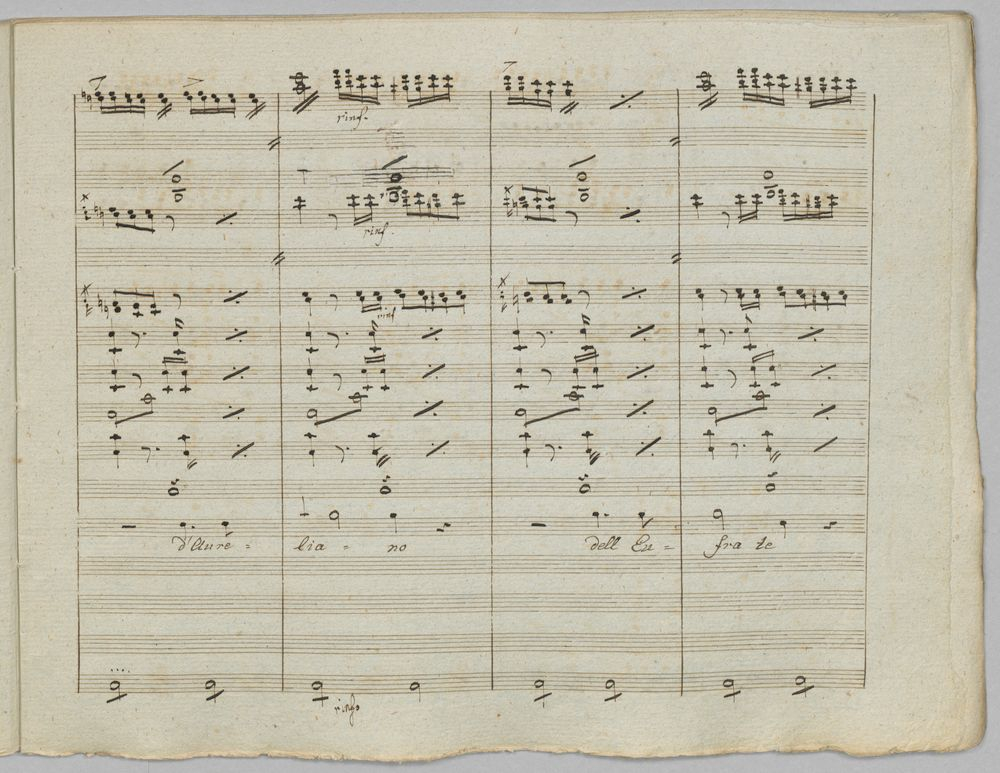 rinf.
rinf.
rinf
d'Aure = lia = no dell Eu = fra te
rinfo